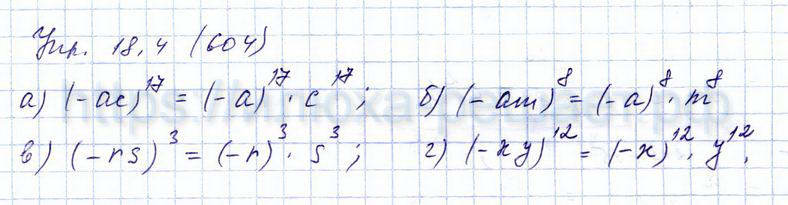 Упр. 18.4 (604)
а) (-ac)¹⁷ = (-a)¹⁷ · c¹⁷; б) (-am)⁸ = (-a)⁸ · m⁸
в) (-rs)³ = (-r)³ · s³; г) (-xy)¹² = (-x)¹² · y¹².